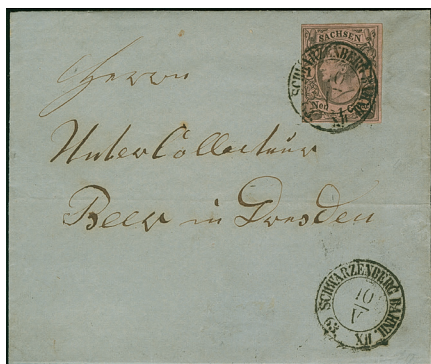 SACHSEN
SCHWARZENBERG BAHNH.
10
V
XII
Herrn
Unter Collecteur
Beer in Dresden
SCHWARZENBERG BAHNH.
10
V
63. XII